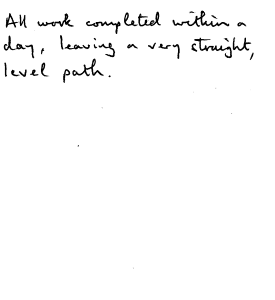 All work completed within a
day, leaving a very straight,
level path.